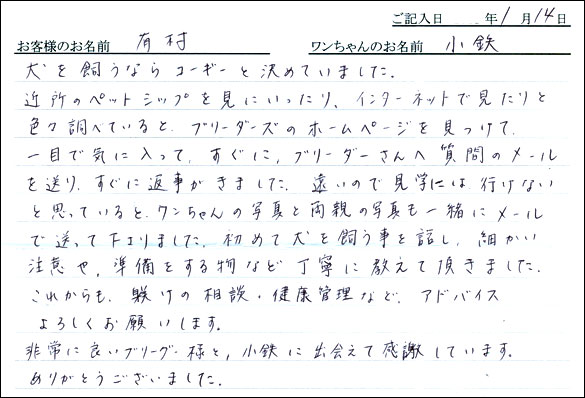 ご記入日 年1月14日
お客様のお名前 有村 ワンちゃんのお名前 小鉄
犬を飼うならコーギーと決めていました。
近所のペットショップを見にいったり、インターネットで見たりと
色々調べていると、ブリーダーズのホームページを見つけて、
一目で気に入って、すぐに、ブリーダーさんへ質問のメール
を送り、すぐに返事がきました。遠いので見学には行けない
と思っていると、ワンちゃんの写真と両親の写真も一緒にメール
で送って下さりました。初めて犬を飼う事を話し、細かい
注意や、準備をする物など丁寧に教えて頂きました。
これからも、躾けの相談・健康管理など、アドバイス
よろしくお願いします。
非常に良いブリーダー様と、小鉄に出会えて感謝しています。
ありがとうございました。